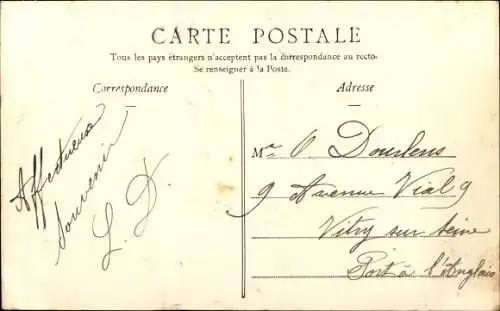 CARTE POSTALE
Tous les pays étrangers n'acceptent pas la correspondance au recto-
Se renseigner à la Poste.
Correspondance
Affectueux
Souvenir
L. D.
Adresse
Mr O. Dourlens
9 Avenue Vial 9
Vitry sur Seine
Port à l'Anglais